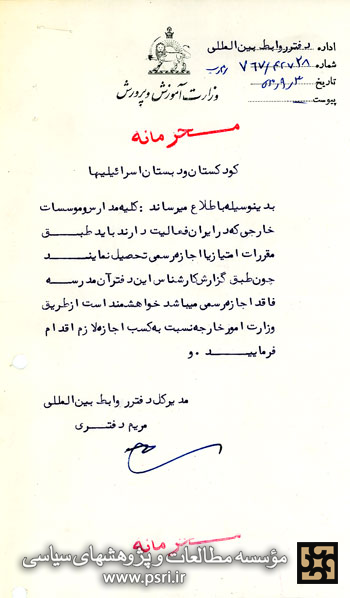 اداره دفتر روابط بین‌المللی
شماره
تاریخ
پیوست
وزارت آموزش و پرورش
محرمانه
کودکستان و دبستان اسرائیلیها
بدینوسیله باطلاع میرساند : کلیه مدارس و موسسات
خارجی که در ایران فعالیت دارند باید طبق
مقررات امتیاز یا اجازه رسمی تحصیل نمایند
چون طبق گزارش کارشناس این دفتر آن مدرسه
فاقد اجازه رسمی میباشد خواهشمند است از طریق
وزارت امور خارجه نسبت به کسب اجازه لازم اقدام
فرمایید . و
مدیرکل دفتر روابط بین‌المللی
مریم دفتری
محرمانه
مؤسسه مطالعات و پژوهشهای سیاسی
www.psri.ir